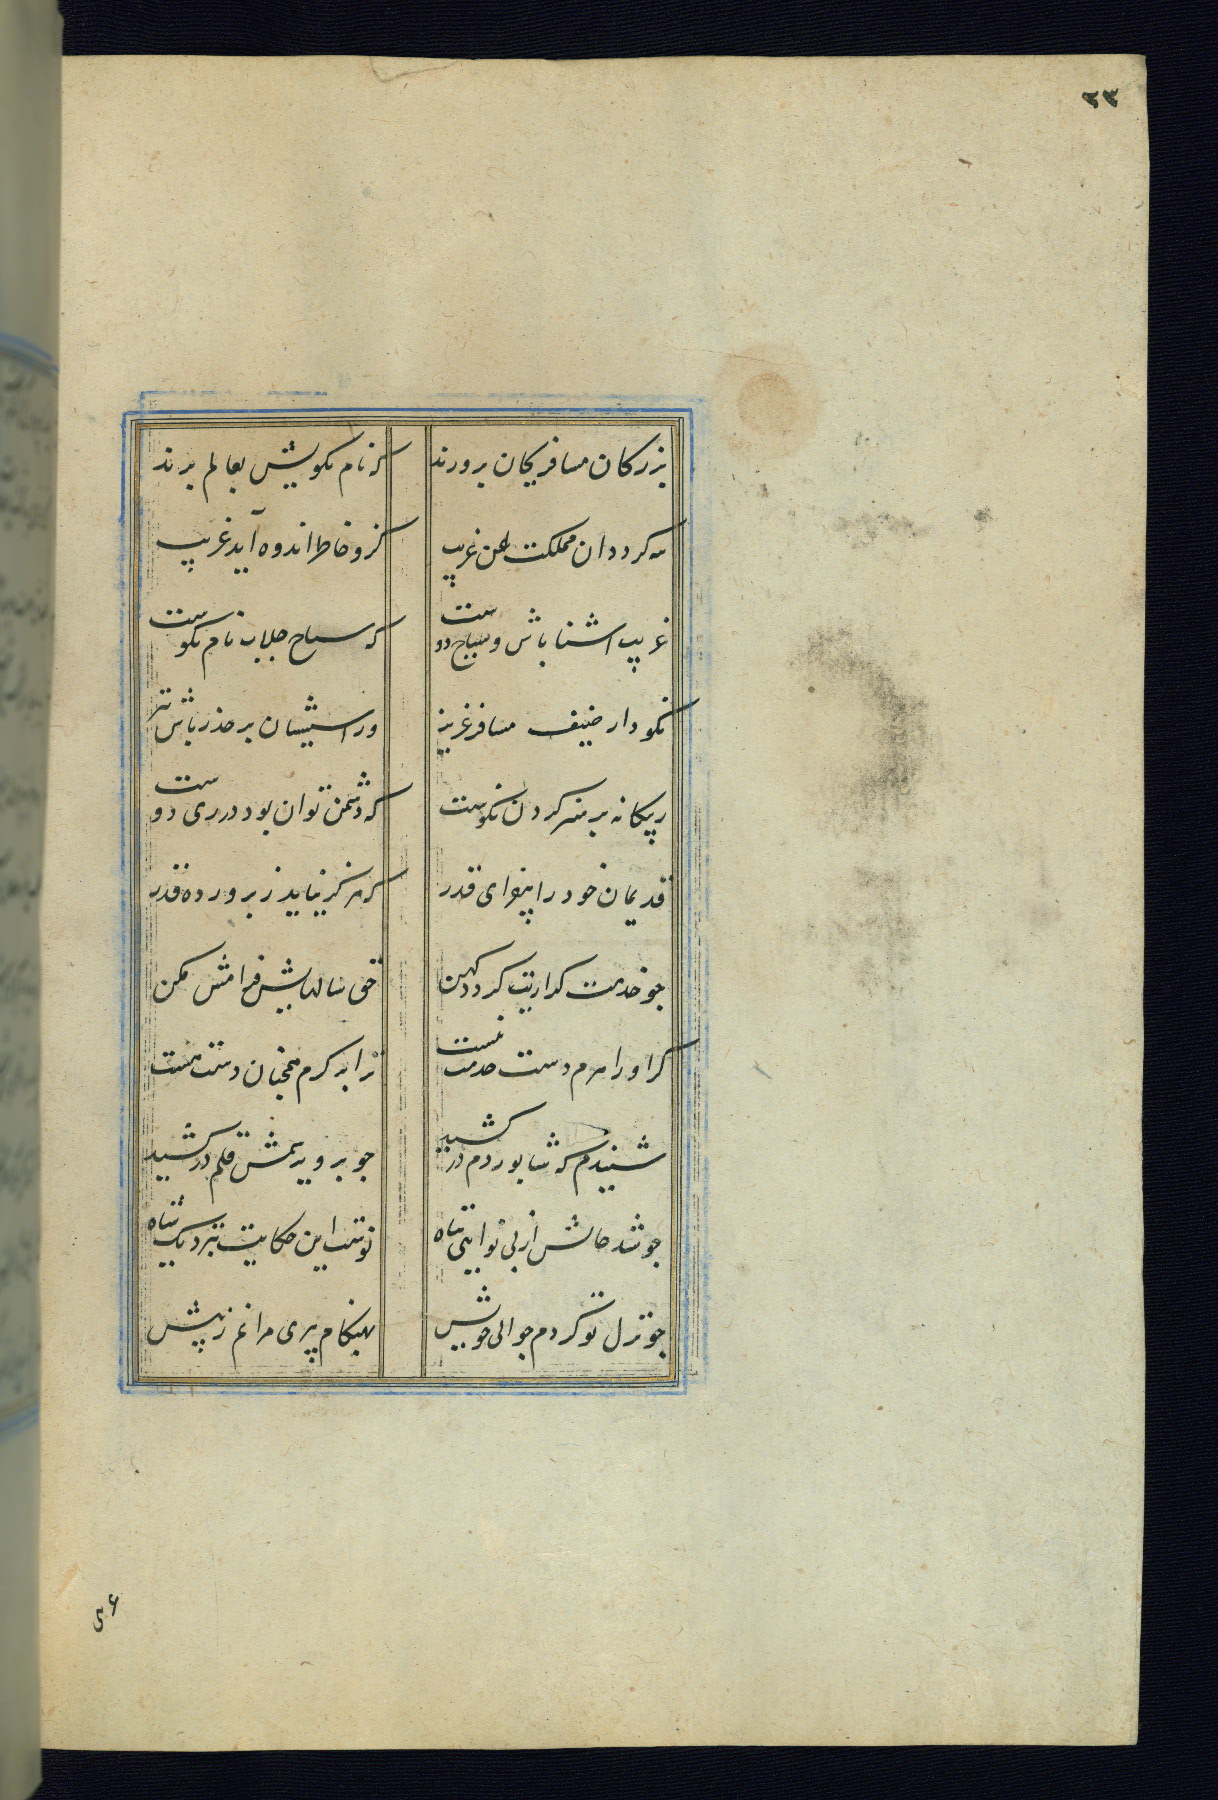 ٣٣
بزرکان مسافر بجان پرورند
که نام نکویش بعالم برند
تبه کردد ان مملکت عن غریب
کزو خاطر اندوه آید غریب
غریب اشنا باش و سیاح دوست
که سیاح جلاب نام نکوست
نکو دار ضیف مسافر عزیز
وز اسیبشان بر حذر باش نیز
ز بیکانه پرهیز کردن نکوست
که دشمن توان بود در زی دوست
قدیمان خود را بیفزای قدر
که هرکز نیاید ز پرورده غدر
جو خدمت کذاریت کردد کهن
حق سالیانش فرامش مکن
کر او را هرم دست خدمت ببست
ترا بر کرم همچنان دست هست
شنیدم که شابور دم در کشید
جو برویز بر رسمش قلم در کشید
جو شد حالش از بی نوایی تباه
نوشت این حکایت بنزدیک شاه
جو بذل تو کردم جوانی خویش
بهنکام پیری مرانم ز پیش